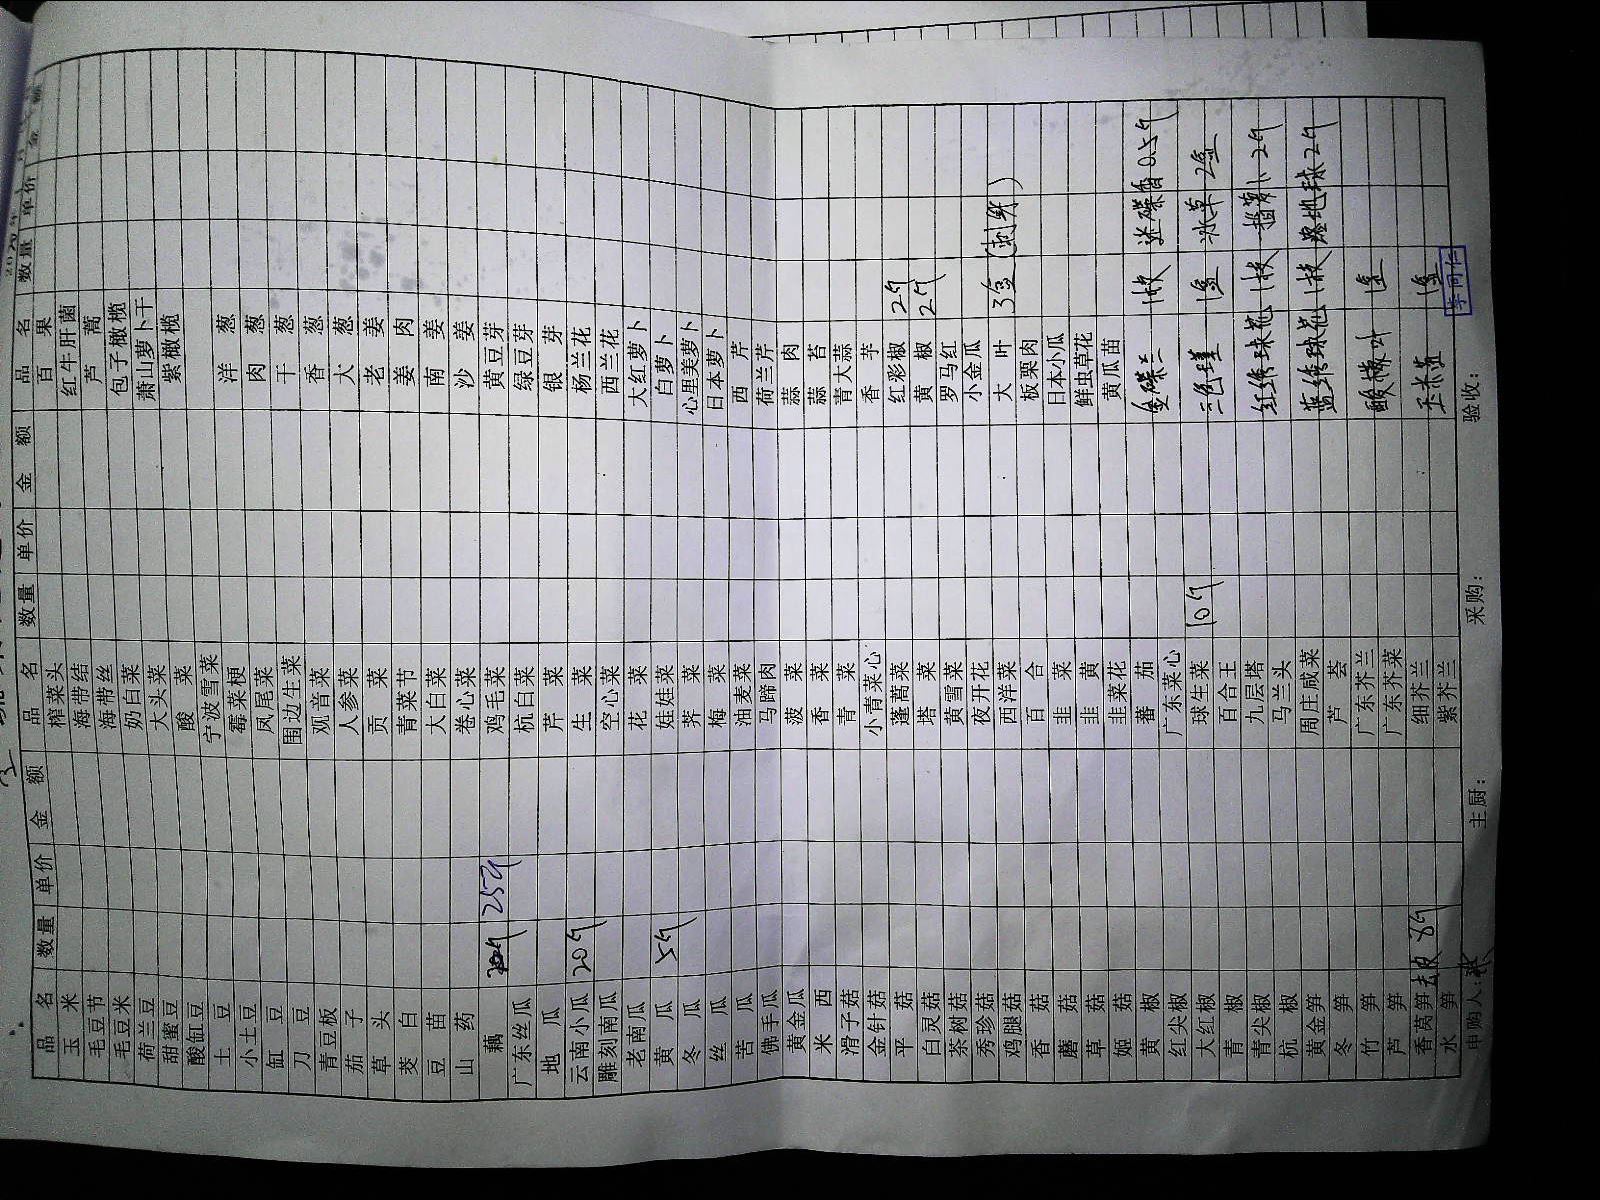 品 名 数量 单价 金 额 品 名 数量 单价 金 额 品 名 数量 单价
玉 米 榨菜头 百 果
毛豆节 海带结 红牛肝菌
毛豆米 海带丝 芦 蒿
荷兰豆 奶白菜 包子橄榄
甜蜜豆 大头菜 萧山萝卜干
酸缸豆 酸 菜 紫橄榄
土 豆 宁波雪菜
小土豆 霉菜梗 洋 葱
缸 豆 凤尾菜 肉 葱
刀 豆 围边生菜 干 葱
青豆板 观音菜 香 葱
茄 子 人参菜 大 葱
草 头 贡 菜 老 姜
茭 白 青菜节 姜 肉
豆 苗 大白菜 南 姜
山 药 卷心菜 沙 姜
藕 25斤 鸡毛菜 黄豆芽
广东丝瓜 杭白菜 绿豆芽
地 瓜 芹 菜 银 芽
云南小瓜 20斤 生 菜 杨兰花
雕刻南瓜 空心菜 西兰花
老南瓜 花 菜 大红萝卜
黄 瓜 5斤 娃娃菜 白萝卜
冬 瓜 荠 菜 心里美萝卜
丝 瓜 梅 菜 日本萝卜
苦 瓜 油麦菜 西 芹
佛手瓜 马蹄肉 荷兰芹
黄金瓜 菠 菜 蒜 肉
米 西 香 菜 蒜 苔
滑子菇 青 菜 青大蒜
金针菇 小青菜心 香 芋
平 菇 蓬蒿菜 红彩椒 2斤
白灵菇 塔 菜 黄 椒 2斤
茶树菇 黄雪菜 罗马红
秀珍菇 夜开花 小金瓜
鸡腿菇 西洋菜 大 叶 3盒
香 菇 百 合 板栗肉
蘑 菇 韭 菜 日本小瓜
草 菇 韭 黄 鲜虫草花
姬 菇 韭菜花 黄瓜苗
黄 椒 番 茄 金碟兰 1枚 迷碟香0.5斤
红尖椒 广东菜心
大红椒 球生菜 10斤 三色堇 1盒 冰草 2盒
青 椒 百合王
青尖椒 九层塔 红绣球花 1枝 萝卜2斤
杭 椒 马兰头
黄金笋 周庄咸菜 蓝绣球花 1枝 地球2斤
冬 笋 芦 荟
竹 笋 广东芥兰 酸模叶 1盒
芦 笋 广东芥菜
香莴笋 去皮 8斤 细芥兰 玉米苗 1盒
水 笋 紫芥兰
申购人: 主厨: 采购: 验收: